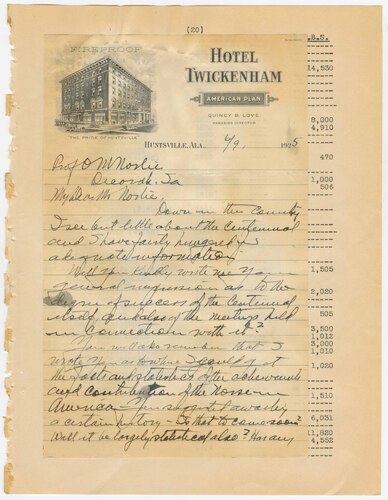 (20)
.B.S.
FIREPROOF
HOTEL
TWICKENHAM
AMERICAN PLAN
QUINCY B. LOVE
MANAGING DIRECTOR
"THE PRIDE OF HUNTSVILLE"
HUNTSVILLE, ALA. 6/9, 1925
Prof O M Norlie
Decorah, Ia
My Dear Mr Norlie
Down in this Country
I see but little about the Centennial
and I have fairly hungered for
adequate information
Will you kindly write me your
general impression as to the
degree of success of the Centennial
itself and also of the meetings held
in Connection with it?
You will also remember that I
wrote you as to where I could get
the facts and statistics of the achievements
and contribution of the Norse in
America - You suggested awaiting
a certain history - Is that to come soon?
Will it be largely statistical also? Has any
14,530
8,000
4,910
470
1,000
506
1,505
2,020
505
3,500
1,012
3,000
1,010
1,020
1,510
6,031
11,820
4,552